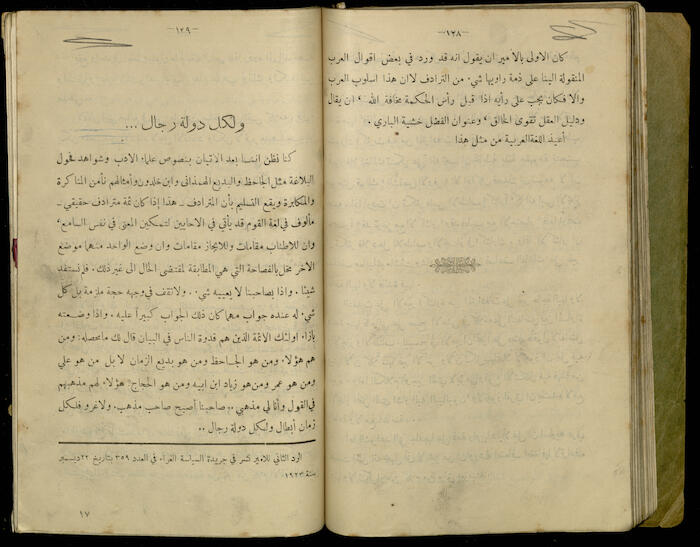 —١٢٨—
كان الاولى بالامير ان يقول انه قد ورد في بعض اقوال العرب
المنقولة الينا على ذمة راويها شيء من الترادف لا ان هذا اسلوب العرب
والا فكان يجب على رأيه اذا قيل رأس الحكمة مخافة الله ، ان يقال
ودليل العقل تقوى الخالق ، وعنوان الفضل خشية الباري .
أعيذ اللغة العربية من مثل هذا
—١٢٩—
ولكل دولة رجال ...
كنا نظن اننا بعد الاتيان بنصوص علماء الادب وشواهد فحول
البلاغة مثل الجاحظ والبديع الهمذاني وابن خلدون وأمثالهم نأمن المناكرة
والمكابرة ويقع التسليم بأن المترادف ـ هذا إذا كان ثمة مترادف حقيقي ـ
مألوف في لغة القوم قد يأتي في الاحايين لتمكين المعنى في نفس السامع ،
وان للاطناب مقامات وللايجاز مقامات وان وضع الواحد منهما موضع
الآخر مخل بالفصاحة التي هي المطابقة لمقتضى الحال الى غير ذلك . فلم نستفد
شيئا . واذا بصاحبنا لا يعييه شيء . ولا تقف في وجهه حجة ملزمة بل كل
شيء له عنده جواب مهما كان ذلك الجواب كبيراً عليه . واذا وضعته
بازاء اولئك الائمة الذين هم قدوة الناس في البيان قال لك ما محصله : ومن
هم هؤلاء ومن هو الجاحظ ومن هو بديع الزمان لا بل من هو علي
ومن هو عمر ومن هو زياد ابن ابيه ومن هو الحجاج ؟ هؤلاء لهم مذهبهم
في القول وأنا لي مذهبي .. صاحبنا أصبح صاحب مذهب . ولا غرو فلكل
زمان أبطال ولكل دولة رجال ..
الرد الثاني للامير نشر في جريدة السياسة الغراء في العدد ٣٥٩ بتاريخ ٢٢ ديسمبر
سنة ١٩٢٣
١٧